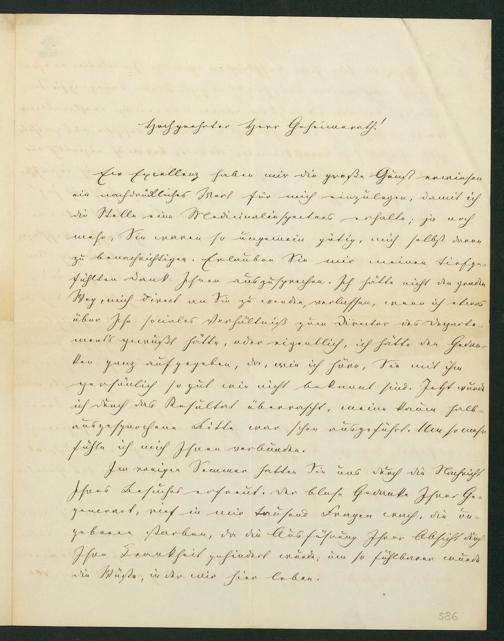 Hochgeehrter Herr Geheimerath!
Ew Excellenz haben mir die große Gunst erwiesen
ein nachdrückliches Wort für mich einzulegen, damit ich
die Stelle eines Medicinalinspectors erhalte; ja noch
mehr, Sie waren so ungemein gütig, mich selbst davon
zu benachrichtigen. Erlauben Sie mir meinen tiefge-
fühlten Dank Ihnen auszusprechen. Ich hätte nicht den graden
Weg, mich direct an Sie zu wenden, verlassen, wenn ich etwas
über Ihr sociales Verhältniß zum Director des Departe-
ments gewußt hätte, oder eigentlich, ich hätte den Gedan-
ken ganz aufgegeben, da, wie ich höre, Sie mit ihm
persönlich so gut wie nicht bekannt sind. Jetzt wurde
ich durch das Resultat überrascht, meine kaum halb-
ausgesprochene Bitte war schon ausgeführt. Um so mehr
fühle ich mich Ihnen verbunden.
Im vorigen Sommer hatten Sie uns durch die Nachricht
Ihres Besuches erfreut. Der bloße Gedanke Ihrer Ge-
genwart, rief in mir tausend Fragen wach, die
starben, da die Ausführung Ihrer Absicht durch
Ihre Krankheit gehindert wurde; um so fühlbarer wurde
die Wüste, in der wir hier leben.
586